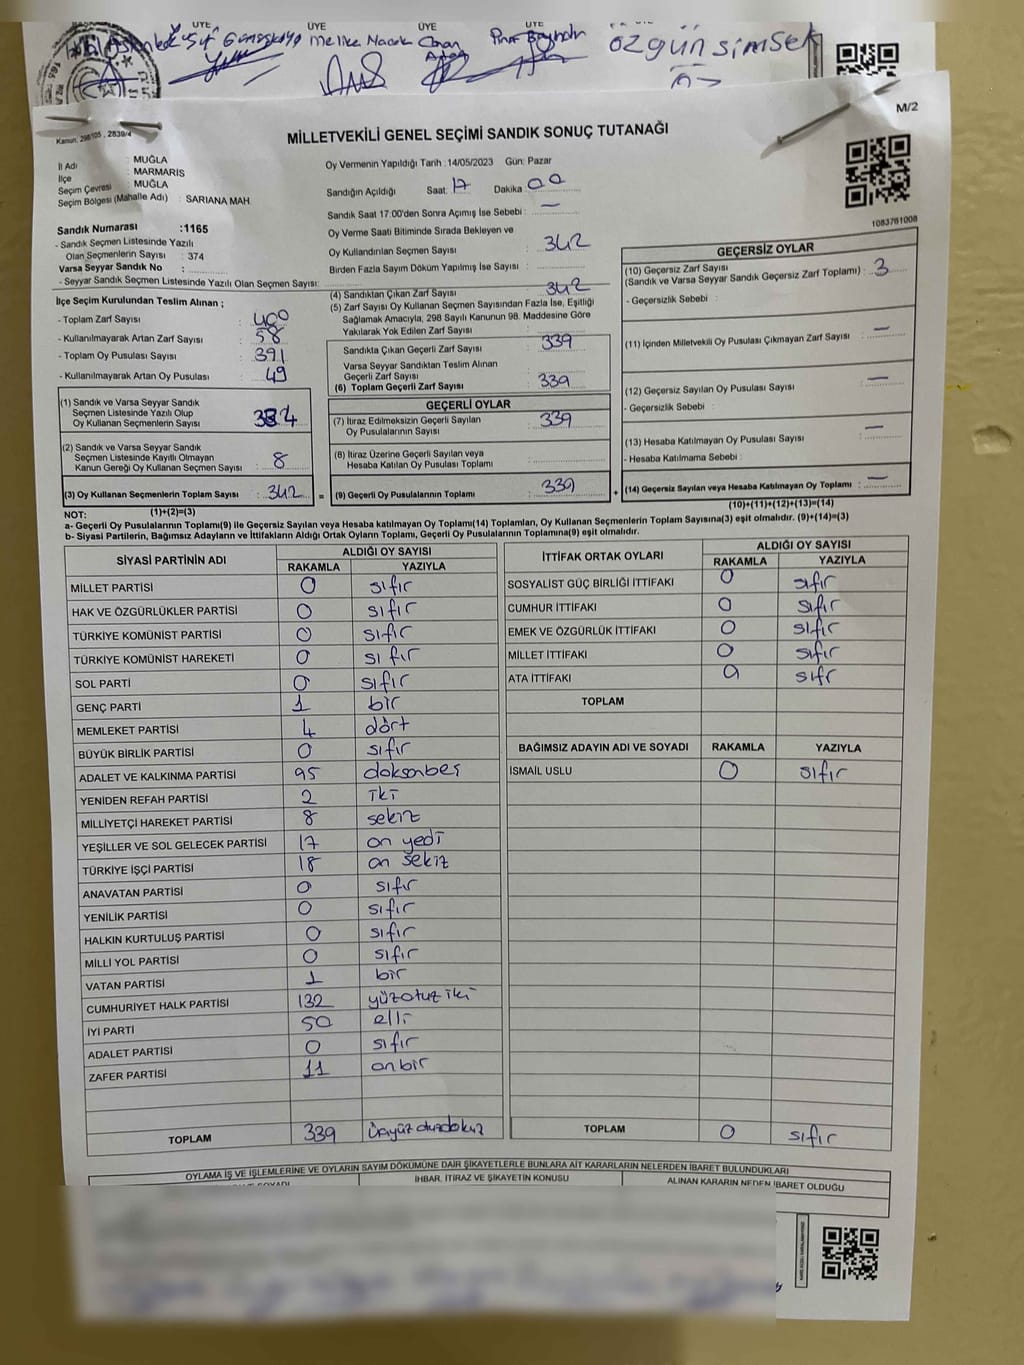 ÜYE ÜYE ÜYE ÜYE
Melike
özgün şimşek
M/2
Kanun: 298/105 , 2839/4
MİLLETVEKİLİ GENEL SEÇİMİ SANDIK SONUÇ TUTANAĞI
İl Adı : MUĞLA
İlçe : MARMARİS
Seçim Çevresi : MUĞLA
Seçim Bölgesi (Mahalle Adı) : SARIANA MAH.
Sandık Numarası :1165
- Sandık Seçmen Listesinde Yazılı
Olan Seçmenlerin Sayısı : 374
Varsa Seyyar Sandık No :
- Seyyar Sandık Seçmen Listesinde Yazılı Olan Seçmen Sayısı:
Oy Vermenin Yapıldığı Tarih : 14/05/2023 Gün: Pazar
Sandığın Açıldığı Saat: 17 Dakika 00
Sandık Saat 17:00'den Sonra Açımış İse Sebebi : —
Oy Verme Saati Bitiminde Sırada Bekleyen ve
Oy Kullandırılan Seçmen Sayısı : 342
Birden Fazla Sayım Döküm Yapılmış İse Sayısı :
1083761008
İlçe Seçim Kurulundan Teslim Alınan ;
- Toplam Zarf Sayısı : 400
- Kullanılmayarak Artan Zarf Sayısı : 58
- Toplam Oy Pusulası Sayısı : 391
- Kullanılmayarak Artan Oy Pusulası : 49
(1) Sandık ve Varsa Seyyar Sandık
Seçmen Listesinde Yazılı Olup
Oy Kullanan Seçmenlerin Sayısı : 334
(2) Sandık ve Varsa Seyyar Sandık
Seçmen Listesinde Kayıtlı Olmayan
Kanun Gereği Oy Kullanan Seçmen Sayısı : 8
(3) Oy Kullanan Seçmenlerin Toplam Sayısı : 342
(1)+(2)=(3)
(4) Sandıktan Çıkan Zarf Sayısı : 342
(5) Zarf Sayısı Oy Kullanan Seçmen Sayısından Fazla İse, Eşitliği
Sağlamak Amacıyla, 298 Sayılı Kanunun 98. Maddesine Göre
Yakılarak Yok Edilen Zarf Sayısı :
Sandıkta Çıkan Geçerli Zarf Sayısı : 339
Varsa Seyyar Sandıktan Teslim Alınan
Geçerli Zarf Sayısı :
(6) Toplam Geçerli Zarf Sayısı : 339
GEÇERLİ OYLAR
(7) İtiraz Edilmeksizin Geçerli Sayılan
Oy Pusulalarının Sayısı : 339
(8) İtiraz Üzerine Geçerli Sayılan veya
Hesaba Katılan Oy Pusulası Toplamı :
= (9) Geçerli Oy Pusulalarının Toplamı : 339
GEÇERSİZ OYLAR
(10) Geçersiz Zarf Sayısı
(Sandık ve Varsa Seyyar Sandık Geçersiz Zarf Toplamı) : 3
- Geçersizlik Sebebi :
(11) İçinden Milletvekili Oy Pusulası Çıkmayan Zarf Sayısı : —
(12) Geçersiz Sayılan Oy Pusulası Sayısı : —
- Geçersizlik Sebebi :
(13) Hesaba Katılmayan Oy Pusulası Sayısı : —
- Hesaba Katılmama Sebebi :
+ (14) Geçersiz Sayılan veya Hesaba Katılmayan Oy Toplamı : —
(10)+(11)+(12)+(13)=(14)
NOT:
a- Geçerli Oy Pusulalarının Toplamı(9) ile Geçersiz Sayılan veya Hesaba katılmayan Oy Toplamı(14) Toplamları, Oy Kullanan Seçmenlerin Toplam Sayısına(3) eşit olmalıdır. (9)+(14)=(3)
b- Siyasi Partilerin, Bağımsız Adayların ve İttifakların Aldığı Ortak Oyların Toplamı, Geçerli Oy Pusulalarının Toplamına(9) eşit olmalıdır.
SİYASİ PARTİNİN ADI ALDIĞI OY SAYISI
RAKAMLA YAZIYLA
MİLLET PARTİSİ 0 sıfır
HAK VE ÖZGÜRLÜKLER PARTİSİ 0 sıfır
TÜRKİYE KOMÜNİST PARTİSİ 0 sıfır
TÜRKİYE KOMÜNİST HAREKETİ 0 sıfır
SOL PARTİ 0 sıfır
GENÇ PARTİ 1 bir
MEMLEKET PARTİSİ 4 dört
BÜYÜK BİRLİK PARTİSİ 0 sıfır
ADALET VE KALKINMA PARTİSİ 95 doksanbeş
YENİDEN REFAH PARTİSİ 2 iki
MİLLİYETÇİ HAREKET PARTİSİ 8 sekiz
YEŞİLLER VE SOL GELECEK PARTİSİ 17 on yedi
TÜRKİYE İŞÇİ PARTİSİ 18 on sekiz
ANAVATAN PARTİSİ 0 sıfır
YENİLİK PARTİSİ 0 sıfır
HALKIN KURTULUŞ PARTİSİ 0 sıfır
MİLLİ YOL PARTİSİ 0 sıfır
VATAN PARTİSİ 1 bir
CUMHURİYET HALK PARTİSİ 132 yüzotuz iki
İYİ PARTİ 50 elli
ADALET PARTİSİ 0 sıfır
ZAFER PARTİSİ 11 onbir
TOPLAM 339 üçyüz otuzdokuz
İTTİFAK ORTAK OYLARI ALDIĞI OY SAYISI
RAKAMLA YAZIYLA
SOSYALİST GÜÇ BİRLİĞİ İTTİFAKI 0 sıfır
CUMHUR İTTİFAKI 0 sıfır
EMEK VE ÖZGÜRLÜK İTTİFAKI 0 sıfır
MİLLET İTTİFAKI 0 sıfır
ATA İTTİFAKI 0 sıfr
TOPLAM
BAĞIMSIZ ADAYIN ADI VE SOYADI RAKAMLA YAZIYLA
İSMAİL USLU 0 sıfır
TOPLAM 0 sıfır
OYLAMA İŞ VE İŞLEMLERİNE VE OYLARIN SAYIM DÖKÜMÜNE DAİR ŞİKAYETLERLE BUNLARA AİT KARARLARIN NELERDEN İBARET BULUNDUKLARI
İHBAR, İTİRAZ VE ŞİKAYETİN KONUSU ALINAN KARARIN NEDEN İBARET OLDUĞU